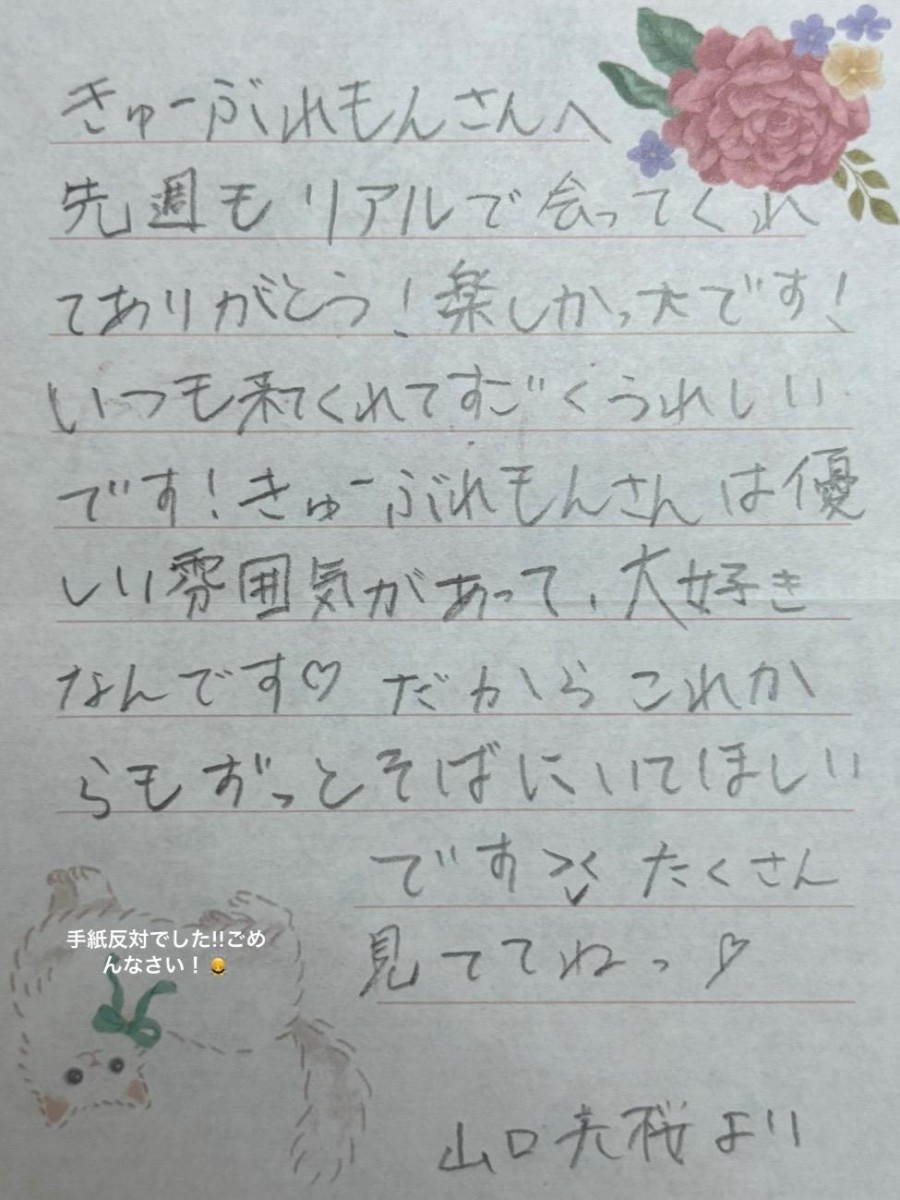 きゅーぶれもんさんへ
先週もリアルで会ってくれ
てありがとう！楽しかったです！
いつも来てくれてすごくうれしい
です！きゅーぶれもんさんは優
しい雰囲気があって、大好き
なんです♡ だからこれか
らもずっとそばにいてほしい
です たくさん
見ててねっ♡
手紙反対でした!!ごめ
んなさい！🙇
山口 桜より